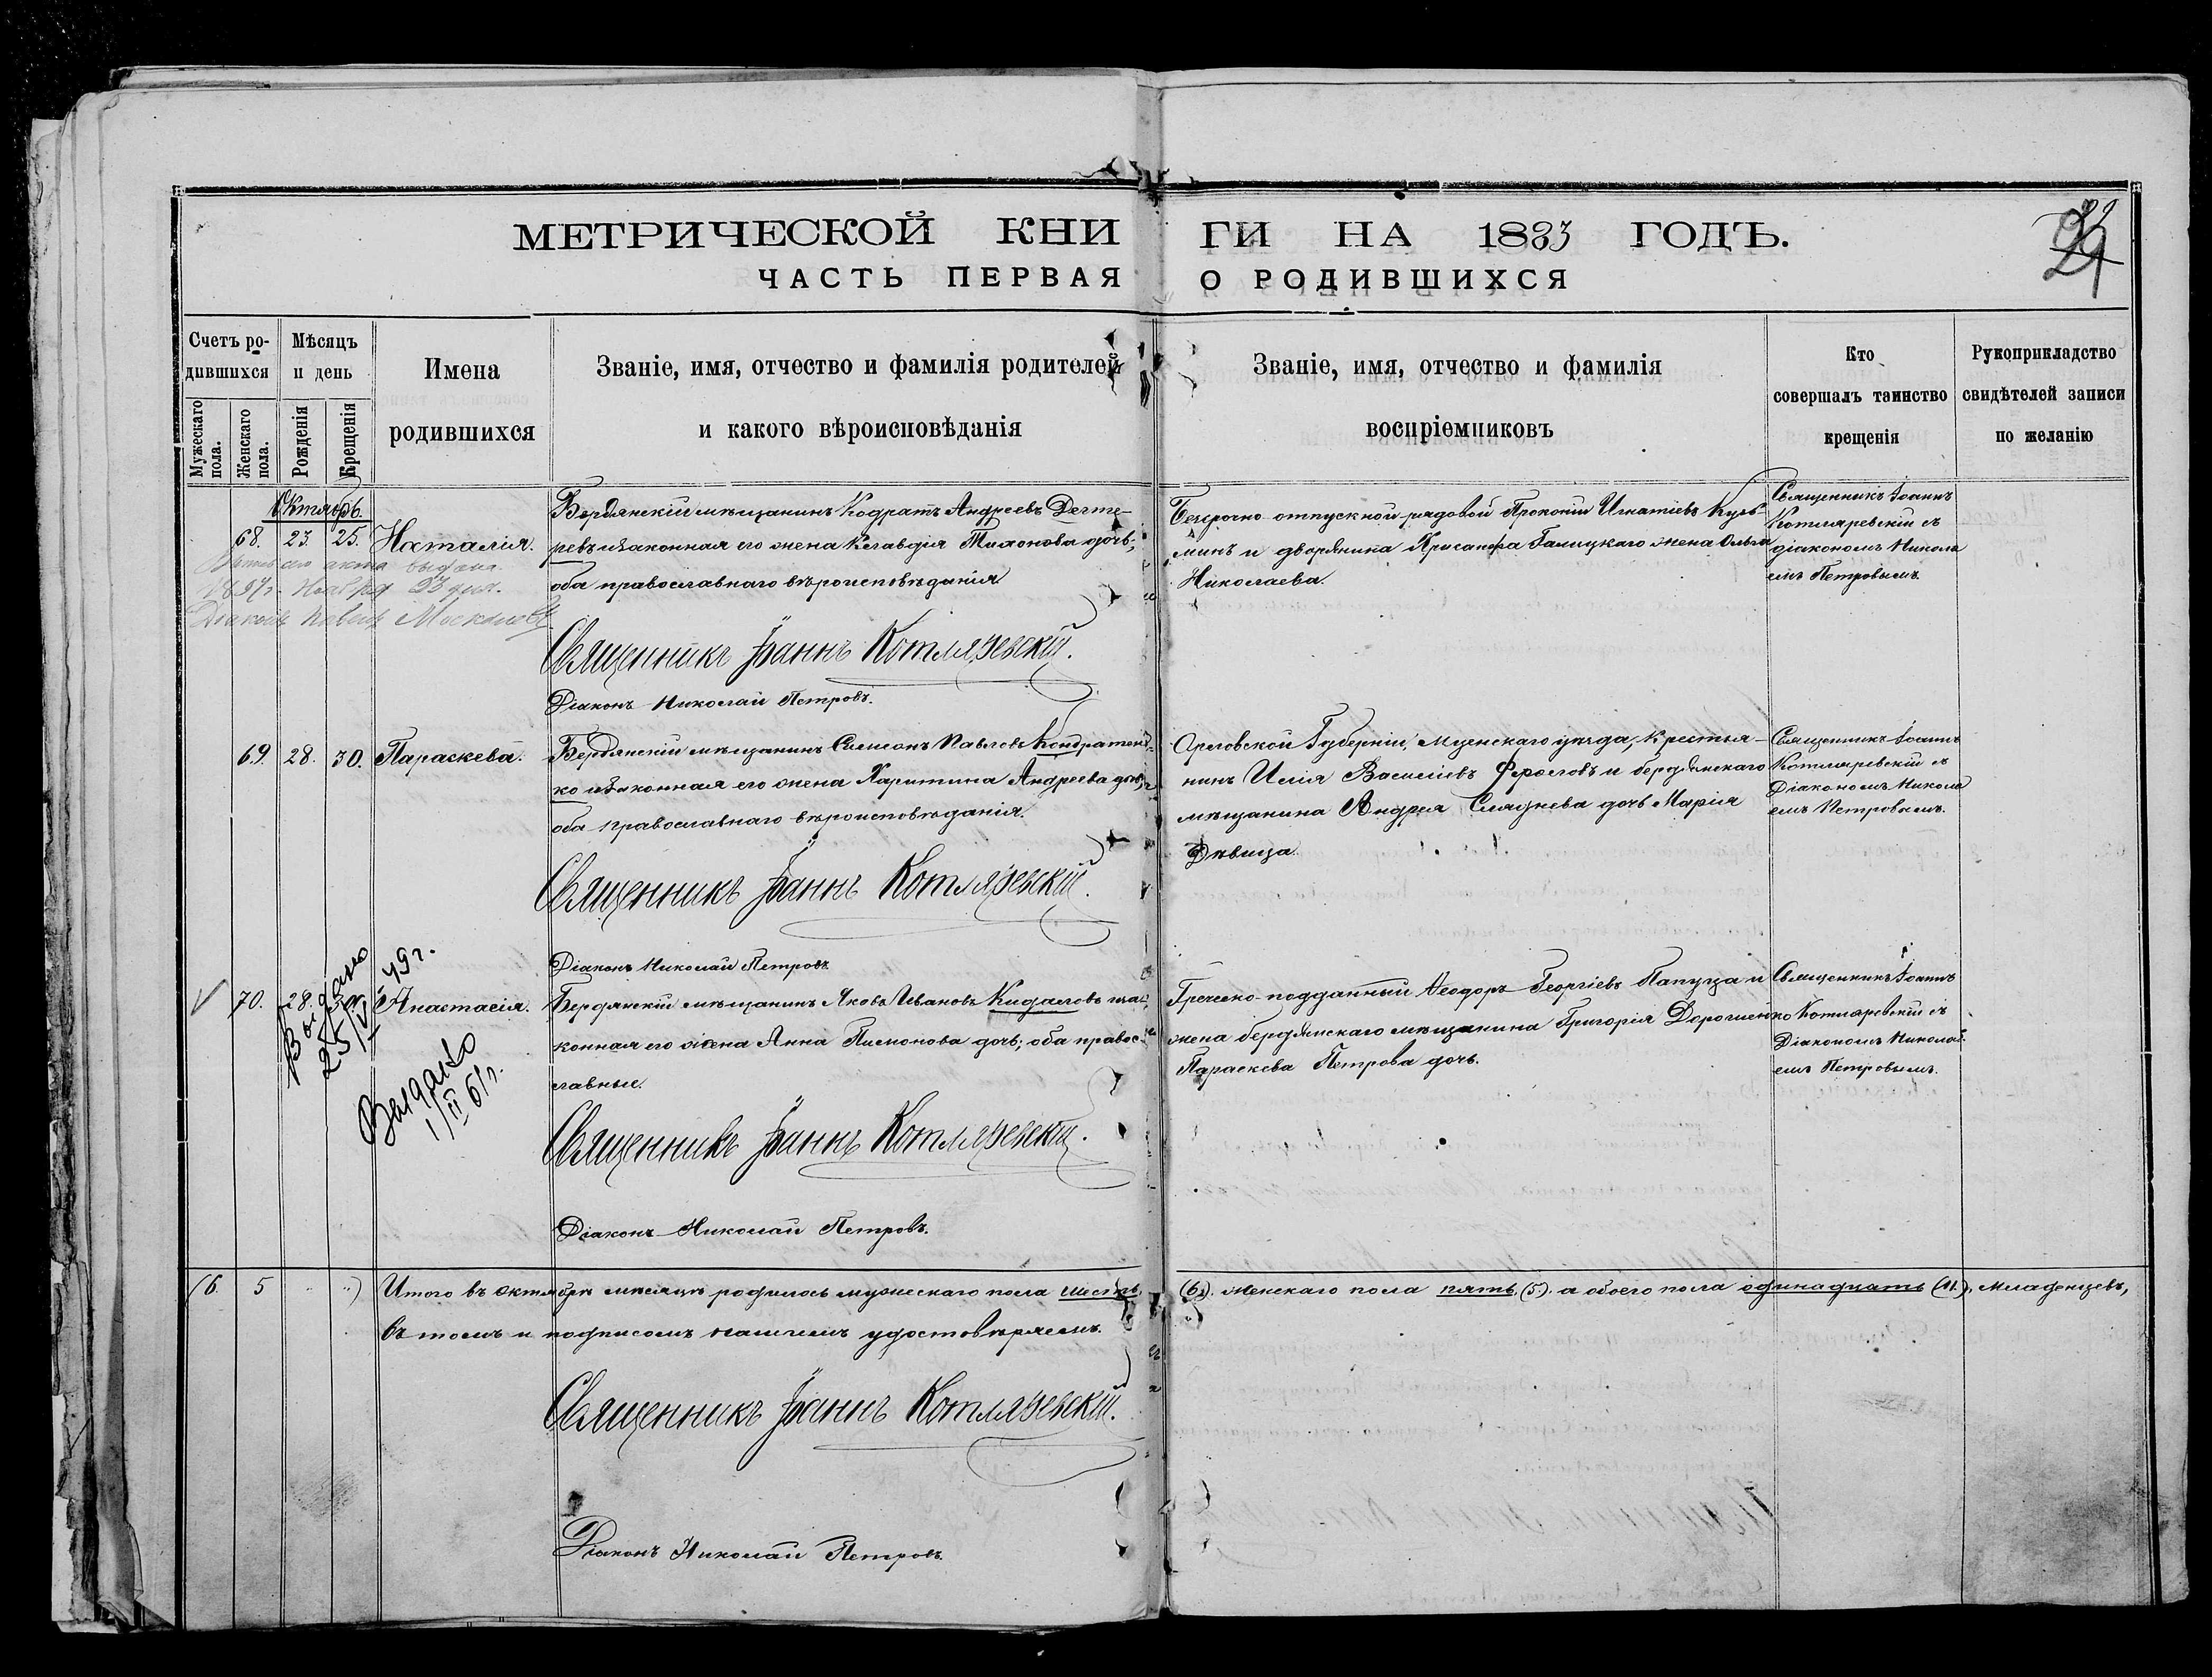 МЕТРИЧЕСКОЙ КНИ ГИ НА 1883 ГОДЪ.
ЧАСТЬ ПЕРВАЯ О РОДИВШИХСЯ
Счетъ ро-
дившихся
Мужескаго
пола.
Женскаго
пола.
Мѣсяцъ
и день
Рожденія
Крещенія
Имена
родившихся
Званіе, имя, отчество и фамилія родителей
и какого вѣроисповѣданія
Званіе, имя, отчество и фамилія
воспріемниковъ
Кто
совершалъ таинство
крещенія
Рукоприкладство
свидѣтелей записи
по желанію
Октябрь.
68. 23. 25. Наталія.
акта выдана
1897г. Ноября 23 дня.
Діаконъ Павелъ
Бердянскій мѣщанинъ Кодратъ Андреевъ Дегте-
ревъ и законная его жена Клавдія Тихонова дочь,
оба православнаго вѣроисповѣданія
Священникъ Іоаннъ Котляревскій.
Діаконъ Николай Петровъ.
Безсрочно-отпускной рядовой Прокопій Игнатіевъ Кузь-
минъ и дворянина Хрисанфа Галицкаго жена Ольга
Николаева.
Священникъ Іоаннъ
Котляревскій съ
діакономъ Никола
емъ Петровымъ.
69. 28. 30. Параскева.
Бердянскій мѣщанинъ Симеонъ Павловъ Кондратен-
ко и законная его жена Харитина Андреева дочь,
оба православнаго вѣроисповѣданія.
Священникъ Іоаннъ Котляревскій.
Діаконъ Николай Петровъ
Орловской Губерніи, Мценскаго уѣзда, крестья-
нинъ Илія Василіевъ Фроловъ и бердянскаго
мѣщанина Андрея Сляднева дочь Марія
Дѣвица.
Священникъ Іоаннъ
Котляревскій съ
Діакономъ Никола
емъ Петровымъ.
70. 28. 30. Анастасія.
Выдано
25/IV 49 г.
Выдано
1/II 61г.
Бердянскій мѣщанинъ Яковъ Ивановъ Кидаловъ и за-
конная его жена Анна Пимонова дочь; оба правос-
лавные.
Священникъ Іоаннъ Котляревскій.
Діаконъ Николай Петровъ.
Греческо-подданный Ѳеодоръ Георгіевъ Папуца и
жена бердянскаго мѣщанина Григорія Дорошенко
Параскева Петрова дочь.
Священникъ Іоаннъ
Котляревскій съ
Діакономъ Никола
емъ Петровымъ.
(6. 5 Итого въ Октябрѣ мѣсяцѣ родилось мужескаго пола шесть (6). женскаго пола пять (5). а обоего пола одинадцать (11). младенцевъ,
въ томъ и подписомъ нашимъ удостовѣряемъ.
Священникъ Іоаннъ Котляревскій.
Діаконъ Николай Петровъ.